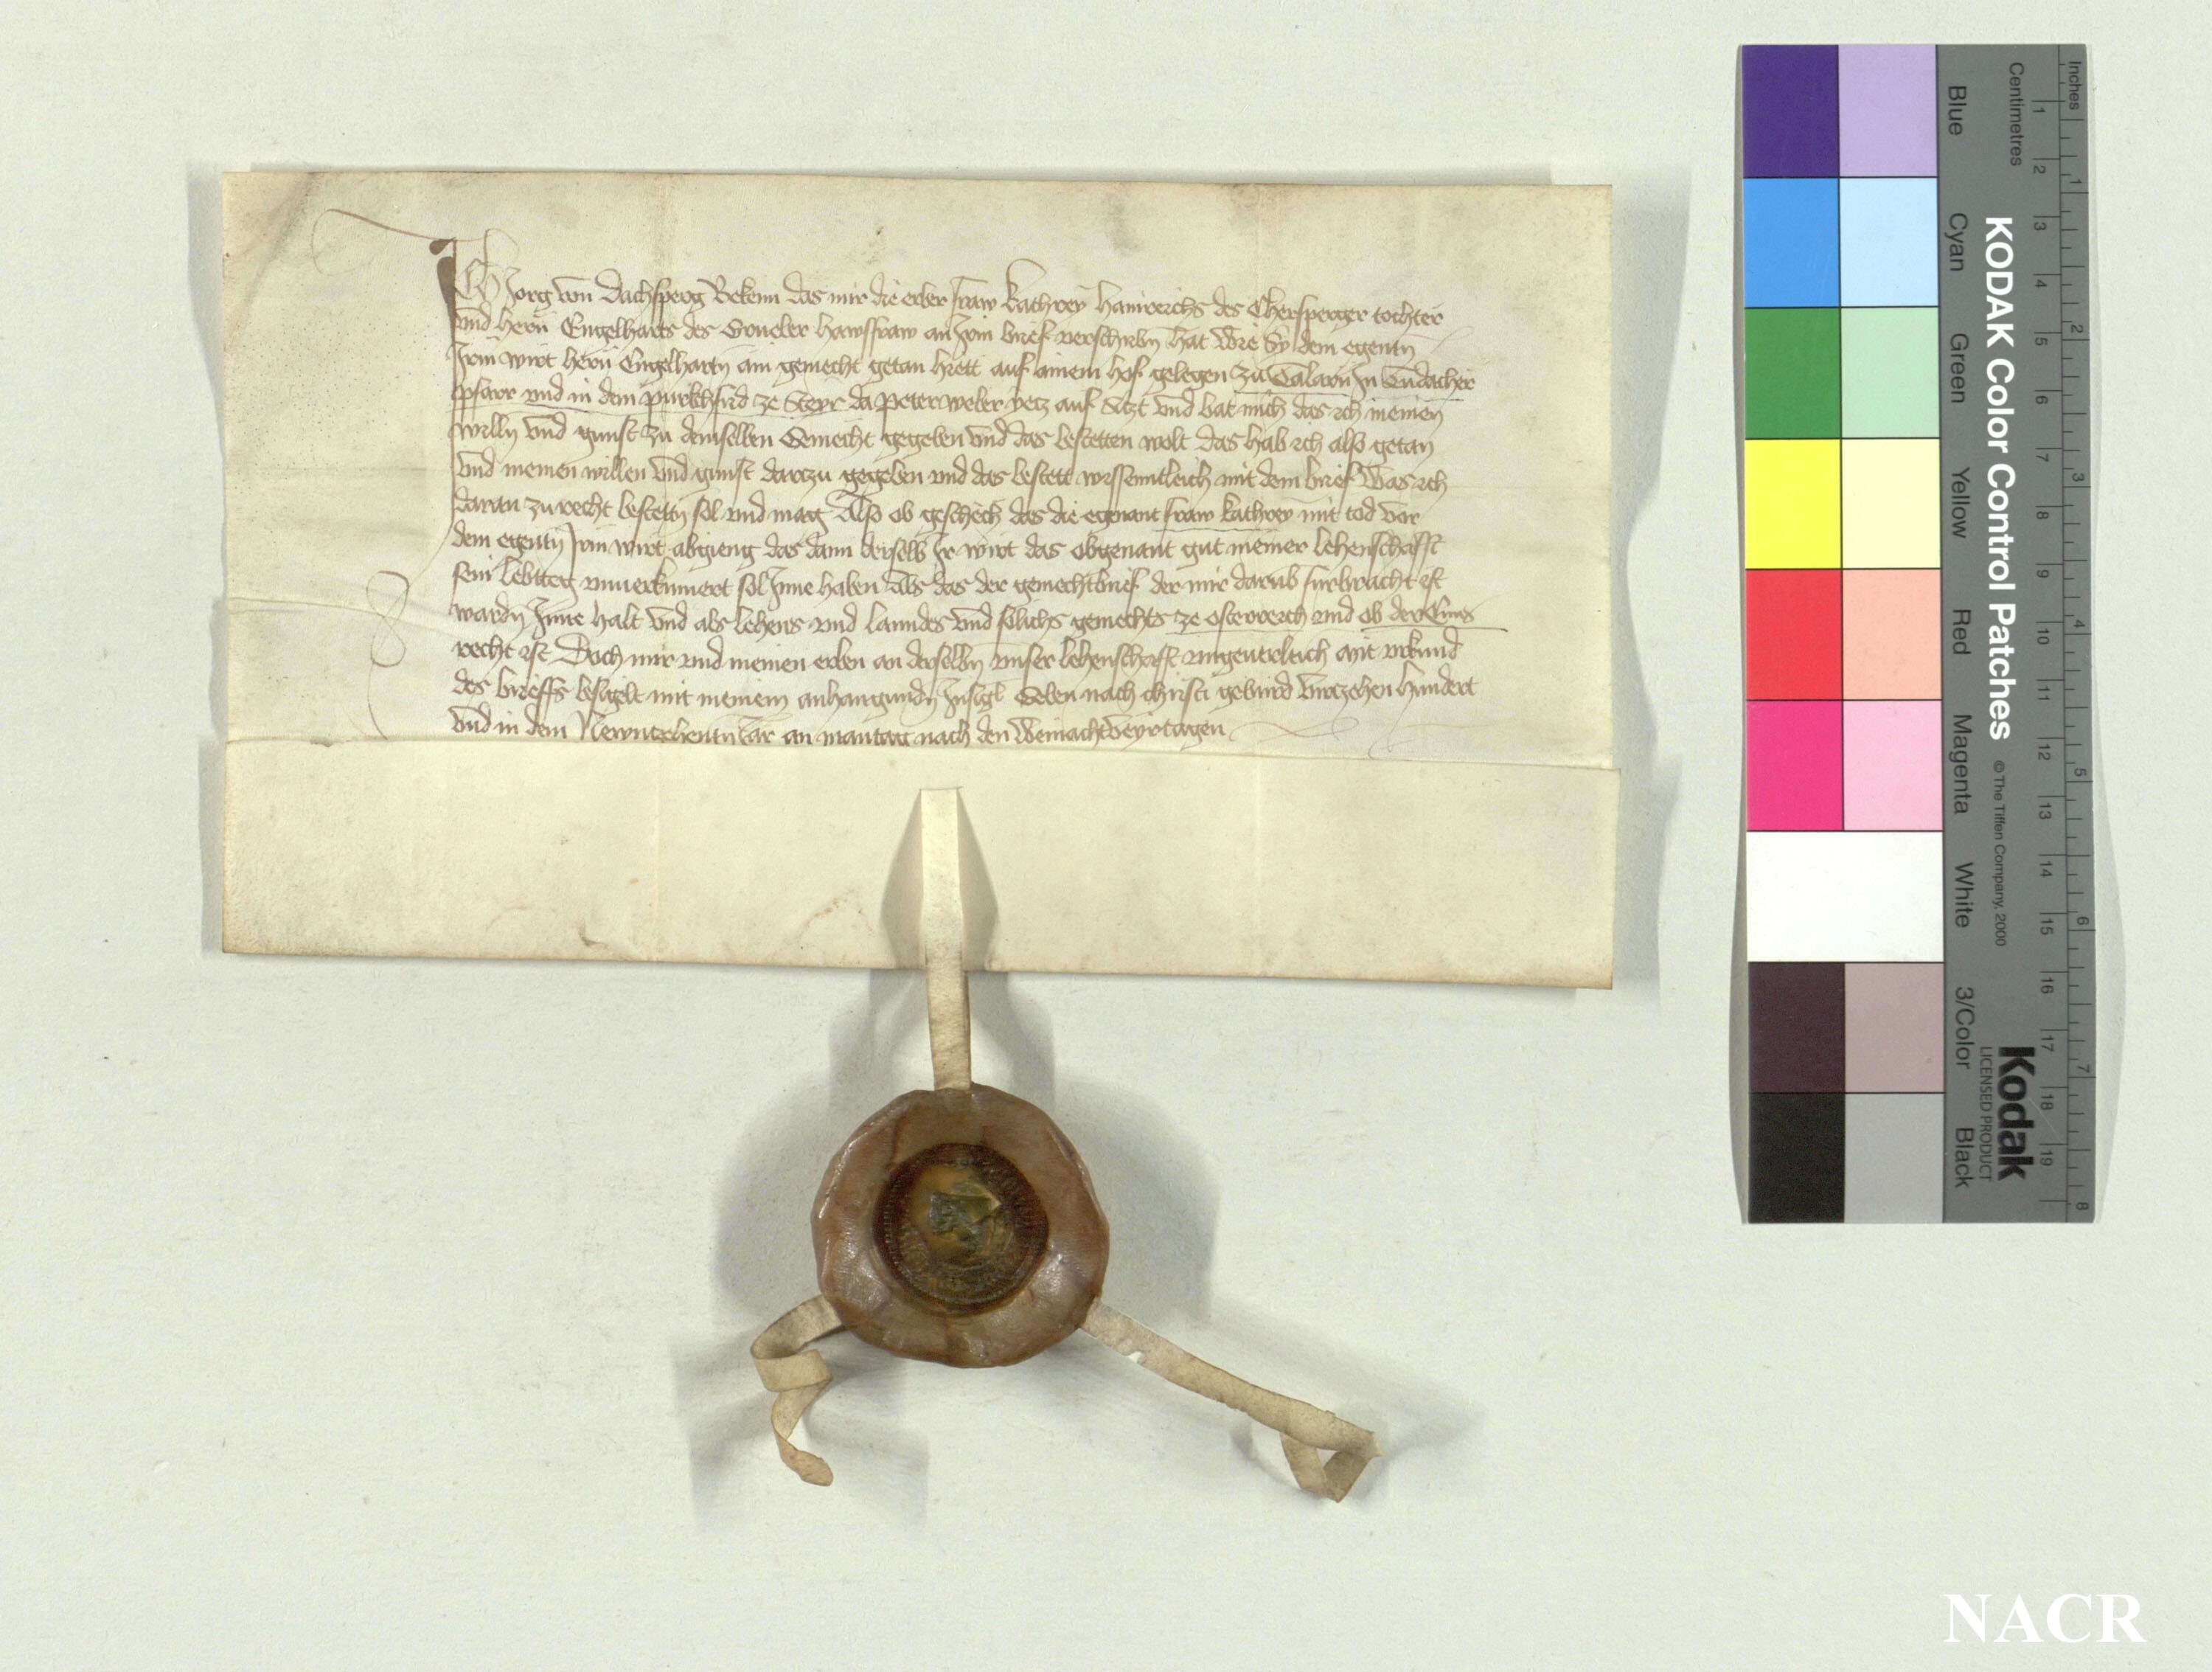 Ich Jorg von Dachsperg Bekenn das mir die erber fraw kathrey hainreichs des Chersperger tochter
vnd hern Engelharts des Goneber hawsfraw an Irm brief verschribn hat wie Sy dem egentn
Irm wirt hern Engelhartn ain gemecht getan hiett auf ainem hof gelegen zu Talarn In
pfarr vnd in dem purkhfrid ze Steyr da peter weber yetz auf sitzt vnd bat mich das ich meinen
willn vnd gunst zu demselben Gemecht gegeben vnd das bestetten wolt das hab ich also getan
vnd meinen willen vnd gunst darczu gegeben vnd das bestett wissentleich mit dem brief Was ich
daran zu recht bestettn sol vnd mag Also ob geschech das die egenant fraw kathrey mit tod vor
dem egentn Irm wirt abgieng das dann derselb Ir wirt das obgenant gut meiner lehenschafft
sein lebtteg vnuerkumert sol Inne haben Als das der gemechtbrief der mir darub furbracht ist
wardn Inne halt vnd als lehens vnd lanndes vnd solichs gemechts ze osterreich vnd ob der Enns
recht ist Doch mir vnd meinen erben an derselbn vnser lehenschafft vngeuerleich Mit vrkund
des brieffs besigelt mit meinem anhangundn Insigl Geben nach christi geburd virczehen hundert
vnd in dem Newnczehentn Jar an mantag nach den Weinachtveyrtagen
Inches
Centimetres
KODAK Color Control Patches
© The Tiffen Company, 2000
Kodak
LICENSED PRODUCT
Blue
Cyan
Green
Yellow
Red
Magenta
White
3/Color
Black
1 2 3 4 5 6 7 8 9 10 11 12 13 14 15 16 17 18 19
1 2 3 4 5 6 7 8
NACR